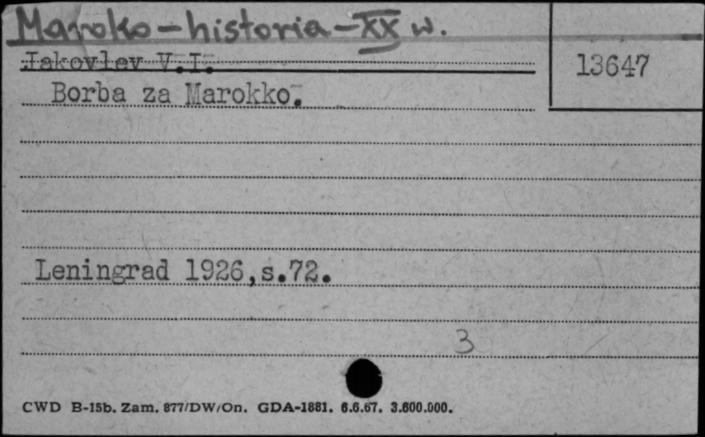 Maroko - historia - XX w.
Jakovlev V.I.
13647
Borba za Marokko.
Leningrad 1926,s.72.
3
CWD B-15b. Zam. 877/DW/On. GDA-1881. 6.6.67. 3.600.000.